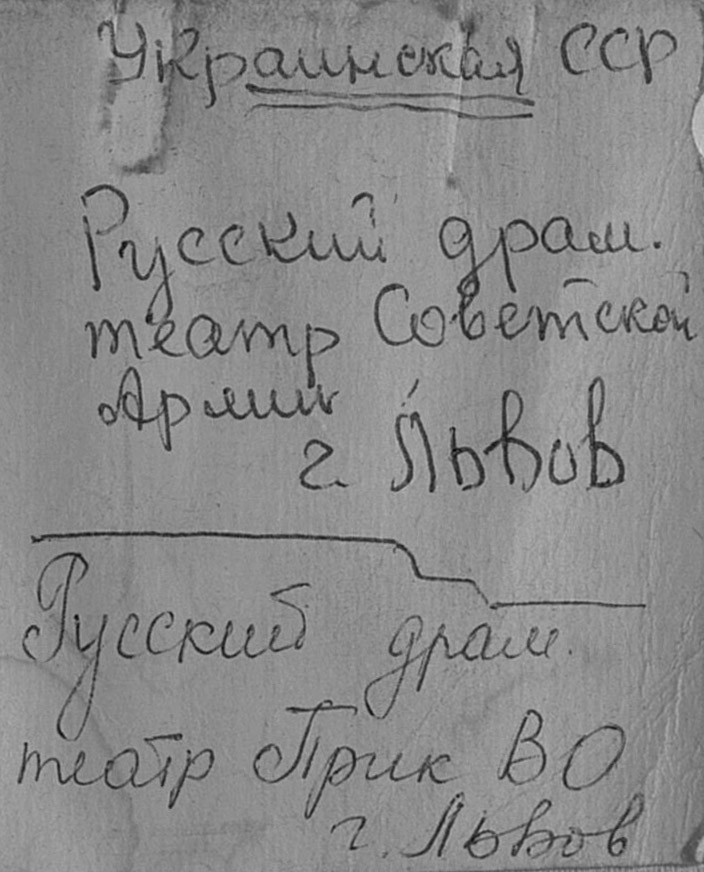 Украинская ССР
Русский драм.
театр Советской
Армии
г. Львов
Русский драм.
театр Прик ВО
г. Львов